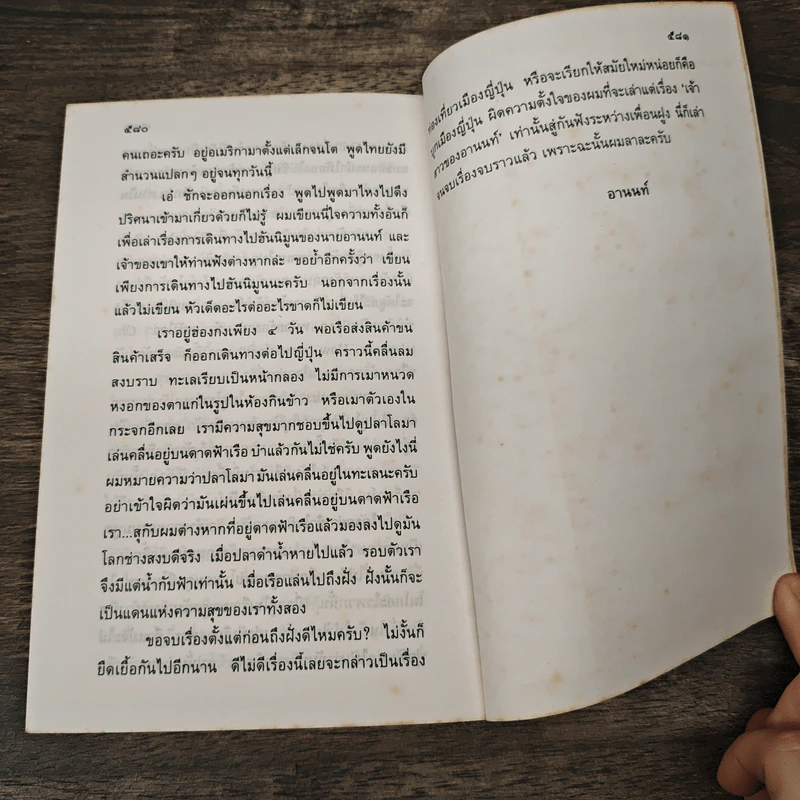 ๕๘๐
คนเถอะครับ อยู่อเมริกามาตั้งแต่เล็กจนโต พูดไทยยังมี
สำนวนแปลกๆ อยู่จนทุกวันนี้
เอ๋ ชักจะออกนอกเรื่อง พูดไปพูดมาไหงไปดึง
ปริศนาเข้ามาเกี่ยวด้วยก็ไม่รู้ ผมเขียนนี่ใจความทั้งอันก็
เพื่อเล่าเรื่องการเดินทางไปฮันนิมูนของนายอานนท์ และ
เจ้าของเขาให้ท่านฟังต่างหากล่ะ ขอย้ำอีกครั้งว่า เขียน
เพียงการเดินทางไปฮันนิมูนนะครับ นอกจากเรื่องนั้น
แล้วไม่เขียน หัวเด็ดอะไรต่ออะไรขาดก็ไม่เขียน
เราอยู่ฮ่องกงเพียง ๔ วัน พอเรือส่งสินค้าขน
สินค้าเสร็จ ก็ออกเดินทางต่อไปญี่ปุ่น คราวนี้คลื่นลม
สงบราบ ทะเลเรียบเป็นหน้ากลอง ไม่มีการเมาหนวด
หงอกของตาแก่ในรูปในห้องกินข้าว หรือเมาตัวเองใน
กระจกอีกเลย เรามีความสุขมากชอบขึ้นไปดูปลาโลมา
เล่นคลื่นอยู่บนดาดฟ้าเรือ บ๋าแล้วกันไม่ใช่ครับ พูดยังไงนี่
ผมหมายความว่าปลาโลมามันเล่นคลื่นอยู่ในทะเลนะครับ
อย่าเข้าใจผิดว่ามันเผ่นขึ้นไปเล่นคลื่นอยู่บนดาดฟ้าเรือ
เรา...สุกับผมต่างหากที่อยู่ดาดฟ้าเรือแล้วมองลงไปดูมัน
โลกช่างสงบดีจริง เมื่อปลาดำน้ำหายไปแล้ว รอบตัวเรา
จึงมีแต่น้ำกับฟ้าเท่านั้น เมื่อเรือแล่นไปถึงฝั่ง ฝั่งนั้นก็จะ
เป็นแดนแห่งความสุขของเราทั้งสอง
ขอจบเรื่องตั้งแต่ก่อนถึงฝั่งดีไหมครับ? ไม่งั้นก็
ยืดเยื้อกันไปอีกนาน ดีไม่ดีเรื่องนี้เลยจะกล่าวเป็นเรื่อง
๕๘๑
ท่องเที่ยวเมืองญี่ปุ่น หรือจะเรียกให้สมัยใหม่หน่อยก็คือ
เมืองญี่ปุ่น ผิดความตั้งใจของผมที่จะเล่าแต่เรื่อง ‘เจ้า
สาวของอานนท์’ เท่านั้นสู่กันฟังระหว่างเพื่อนฝูง นี่ก็เล่า
จนจบเรื่องจบราวแล้ว เพราะฉะนั้นผมลาละครับ
อานนท์